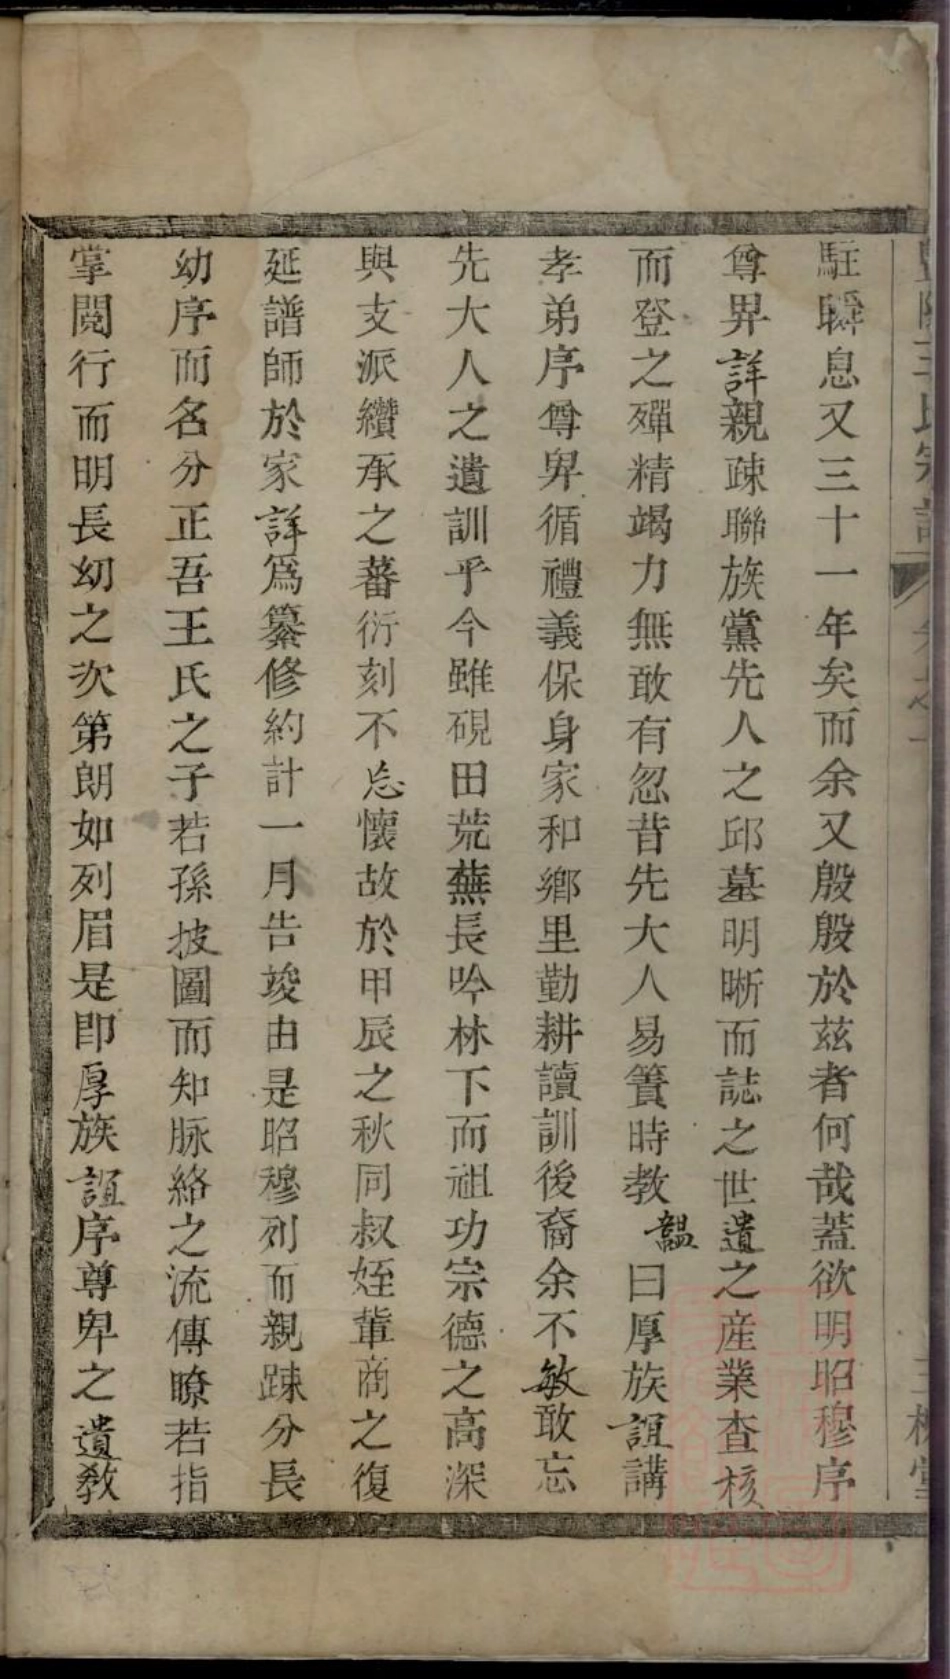 駐瞬息又三十一年矣而余又殷殷於茲者何哉蓋欲明昭穆序
尊畀詳親疎聯族黨先人之邱墓明晰而誌之世遺之産業查核
而登之殫精竭力無敢有忽昔先大人易簀時教韞曰厚族誼講
孝弟序尊卑循禮義保身家和鄉里勤耕讀訓後裔余不敏敢忘
先大人之遺訓乎今雖硯田荒蕪長吟林下而祖功宗德之高深
與支派纘承之蕃衍刻不忘懷故於甲辰之秋同叔姪軰商之復
延譜師於家詳爲纂修約計一月告竣由是昭穆列而親踈分長
幼序而名分正吾王氏之子若孫披圖而知脉絡之流傳瞭若指
掌閱行而明長幼之次第朗如列眉是即厚族誼序尊卑之遺敎